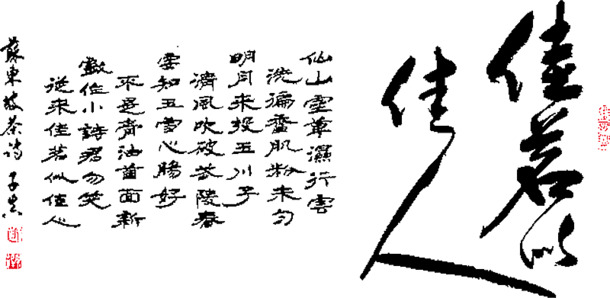 佳茗似
佳人
仙山靈草濕行雲
洗遍香肌粉未勻
明月来投玉川子
清風吹破武陵春
要知玉雪心腸好
不是膏油首面新
戲作小詩君勿笑
從来佳茗似佳人
蘇東坡茶詩